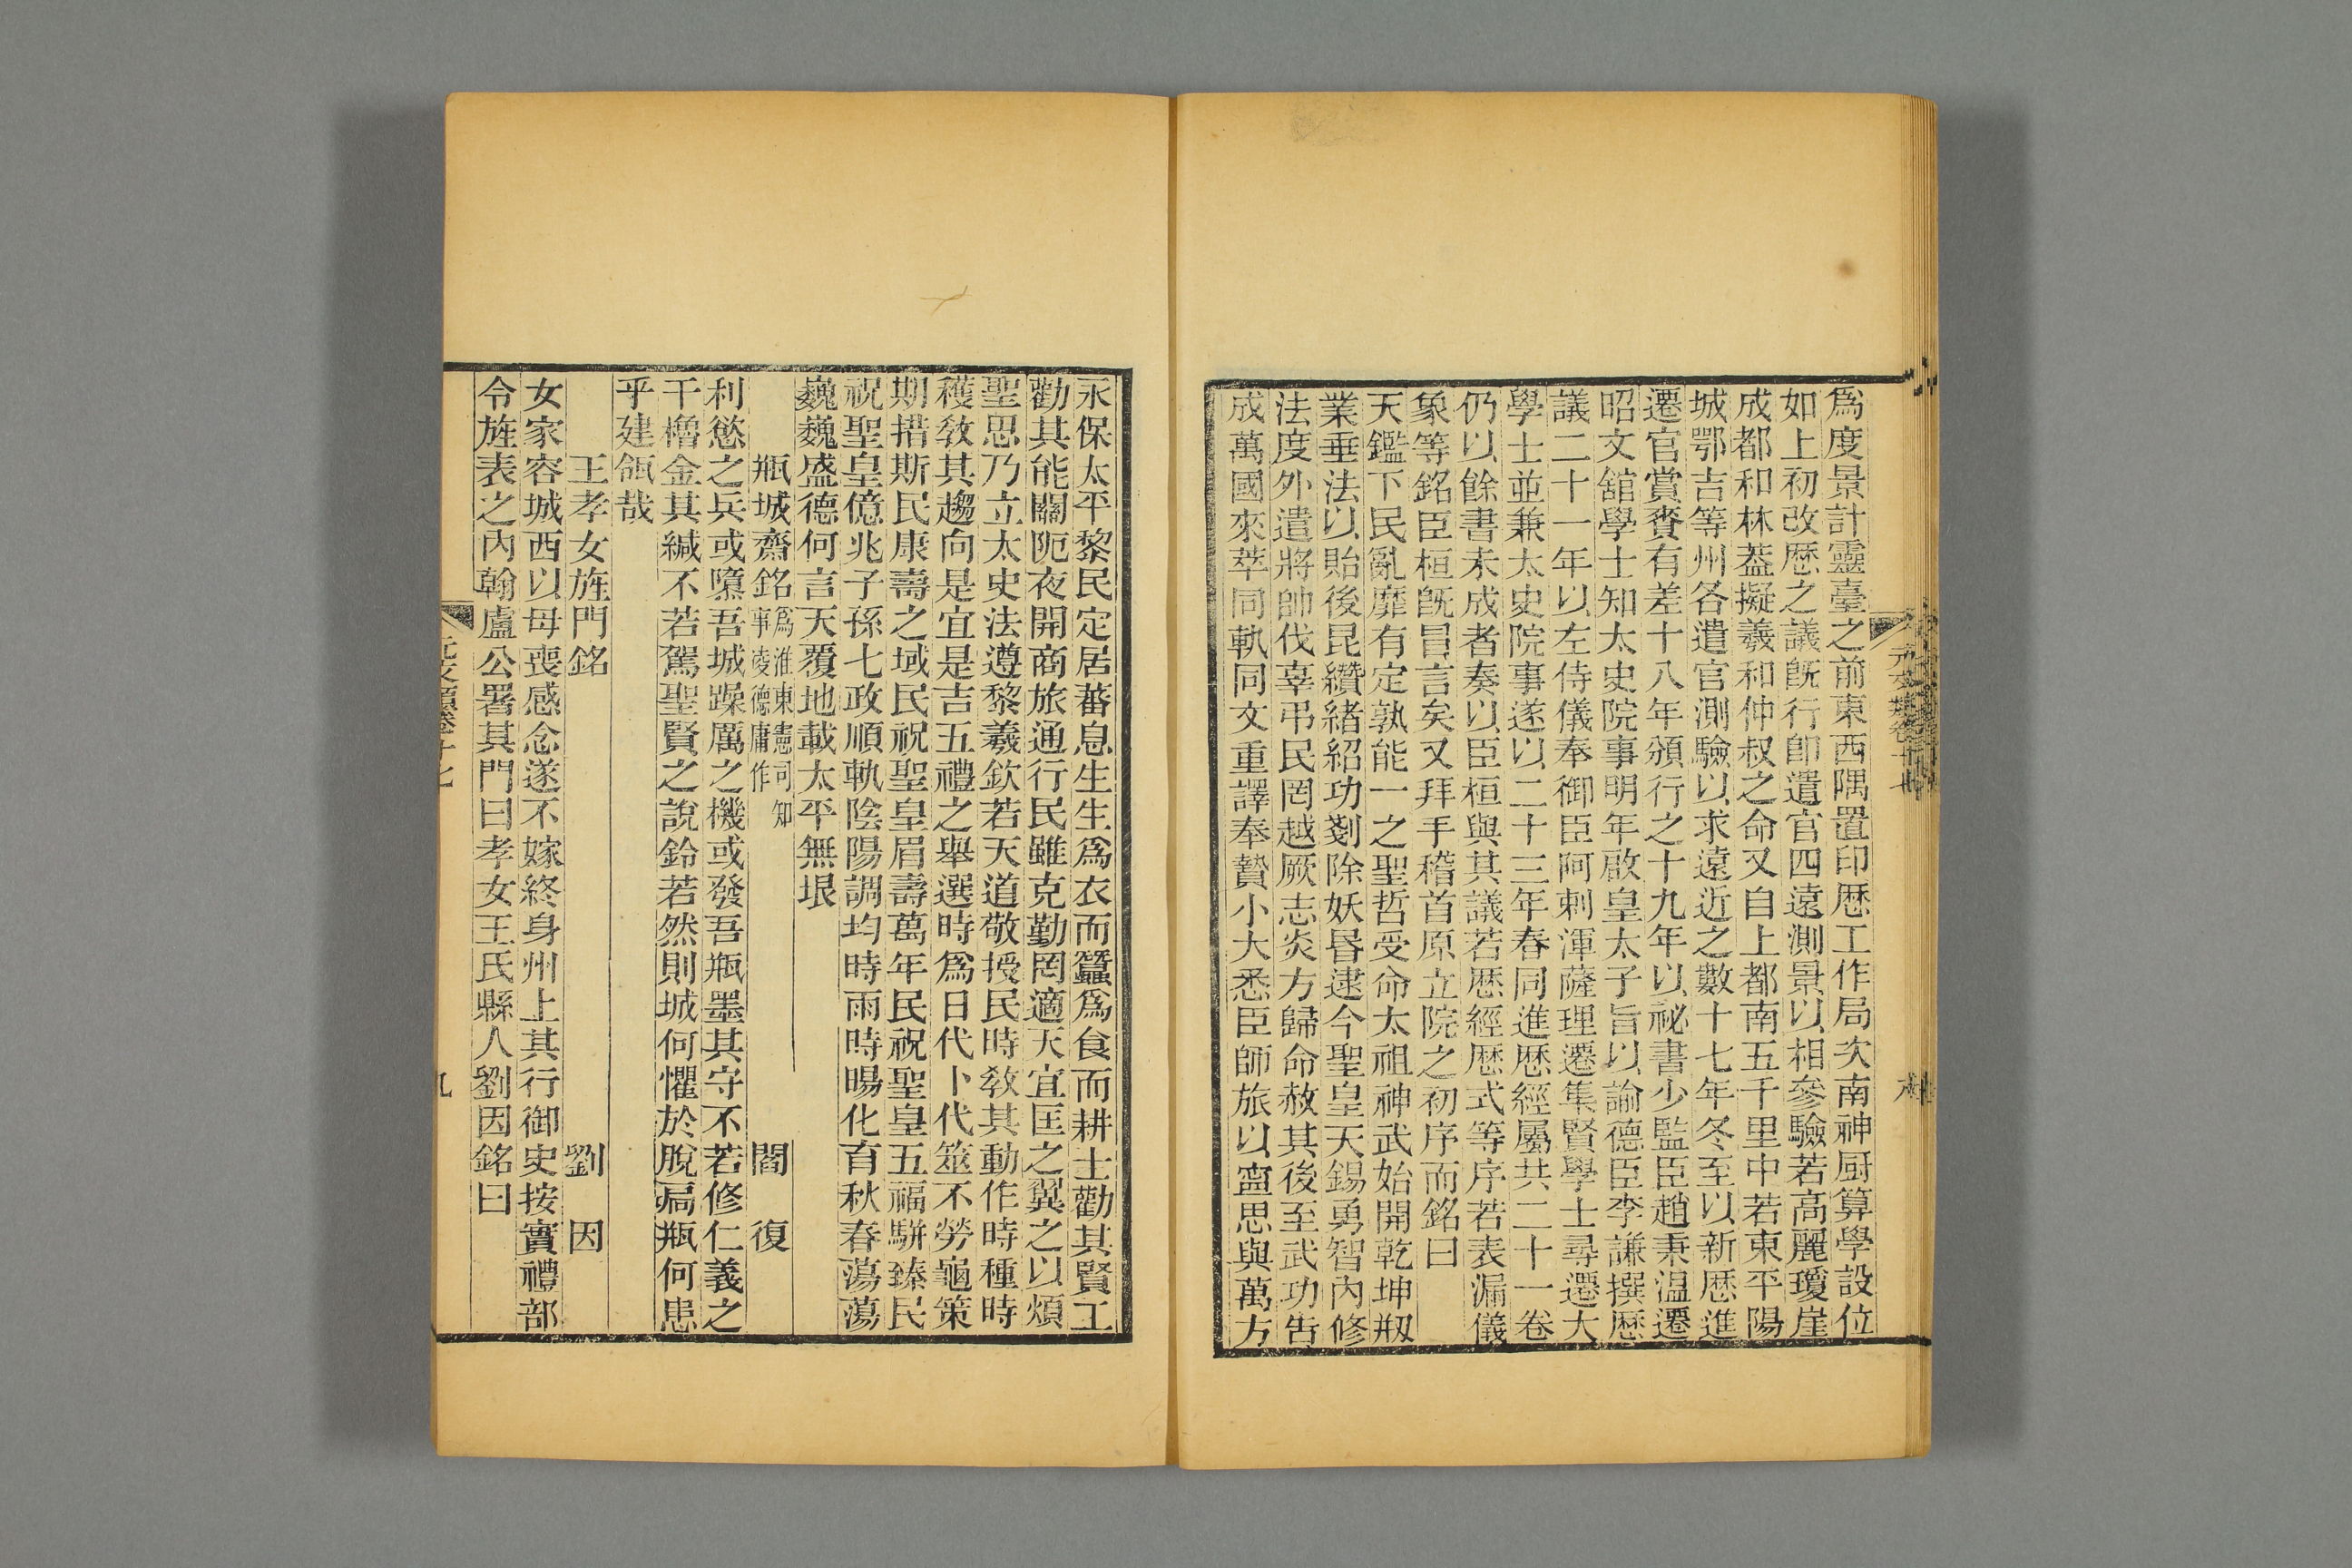 爲度景計靈臺之前東西隅置印厯工作局次南神厨算學設位
如上初改厯之議旣行卽遣官四遠測景以相參驗若高麗瓊崖
成都和林葢擬羲和仲叔之命又自上都南五千里中若東平陽
城鄂吉等州各遣官測驗以求遠近之數十七年冬至以新厯進
遷官賞賚有差十八年頒行之十九年以祕書少監臣趙秉温遷
昭文舘學士知太史院事明年啟皇太子旨以諭德臣李謙撰厯
議二十一年以左侍儀奉御臣阿剌渾薩理遷集賢學士尋遷大
學士並兼太史院事遂以二十三年春同進厯經屬共二十一卷
仍以餘書未成者奏以臣桓與其議若厯經厯式等序若表漏儀
象等銘臣桓旣冒言矣又拜手稽首原立院之初序而銘曰
天鑑下民亂靡有定孰能一之聖哲受命太祖神武始開乾坤剏
業垂法以貽後昆纘緒紹功剗除妖昬逮今聖皇天錫勇智內修
法度外遣將帥伐辜弔民罔越厥志炎方歸命赦其後至武功吿
成萬國來萃同軌同文重譯奉贄小大悉臣師旅以寍思與萬方
元文類卷十七
永保太平黎民定居蕃息生生爲衣而蠶爲食而耕士勸其賢工
勸其能關阨夜開商旅通行民雖克勤罔適天宜匡之翼之以煩
聖思乃立太史法遵黎羲欽若天道敬授民時敎其動作時種時
穫敎其趨向是宜是吉五禮之舉選時爲日代卜代筮不勞龜策
期措斯民康壽之域民祝聖皇眉壽萬年民祝聖皇五福駢臻民
祝聖皇億兆子孫七政順軌陰陽調均時雨時暘化育秋春蕩蕩
巍巍盛德何言天覆地載太平無垠
瓶城齋銘爲淮東憲司知事凌德庸作 閻復
利慾之兵或隳吾城躁厲之機或發吾瓶墨其守不若修仁義之
干櫓金其緘不若駕聖賢之說鈴若然則城何懼於脫扃瓶何患
乎建瓴哉
王孝女旌門銘 劉因
女家容城西以母喪感念遂不嫁終身州上其行御史按實禮部
令旌表之內翰盧公署其門曰孝女王氏縣人劉因銘曰
元文類卷十七
九